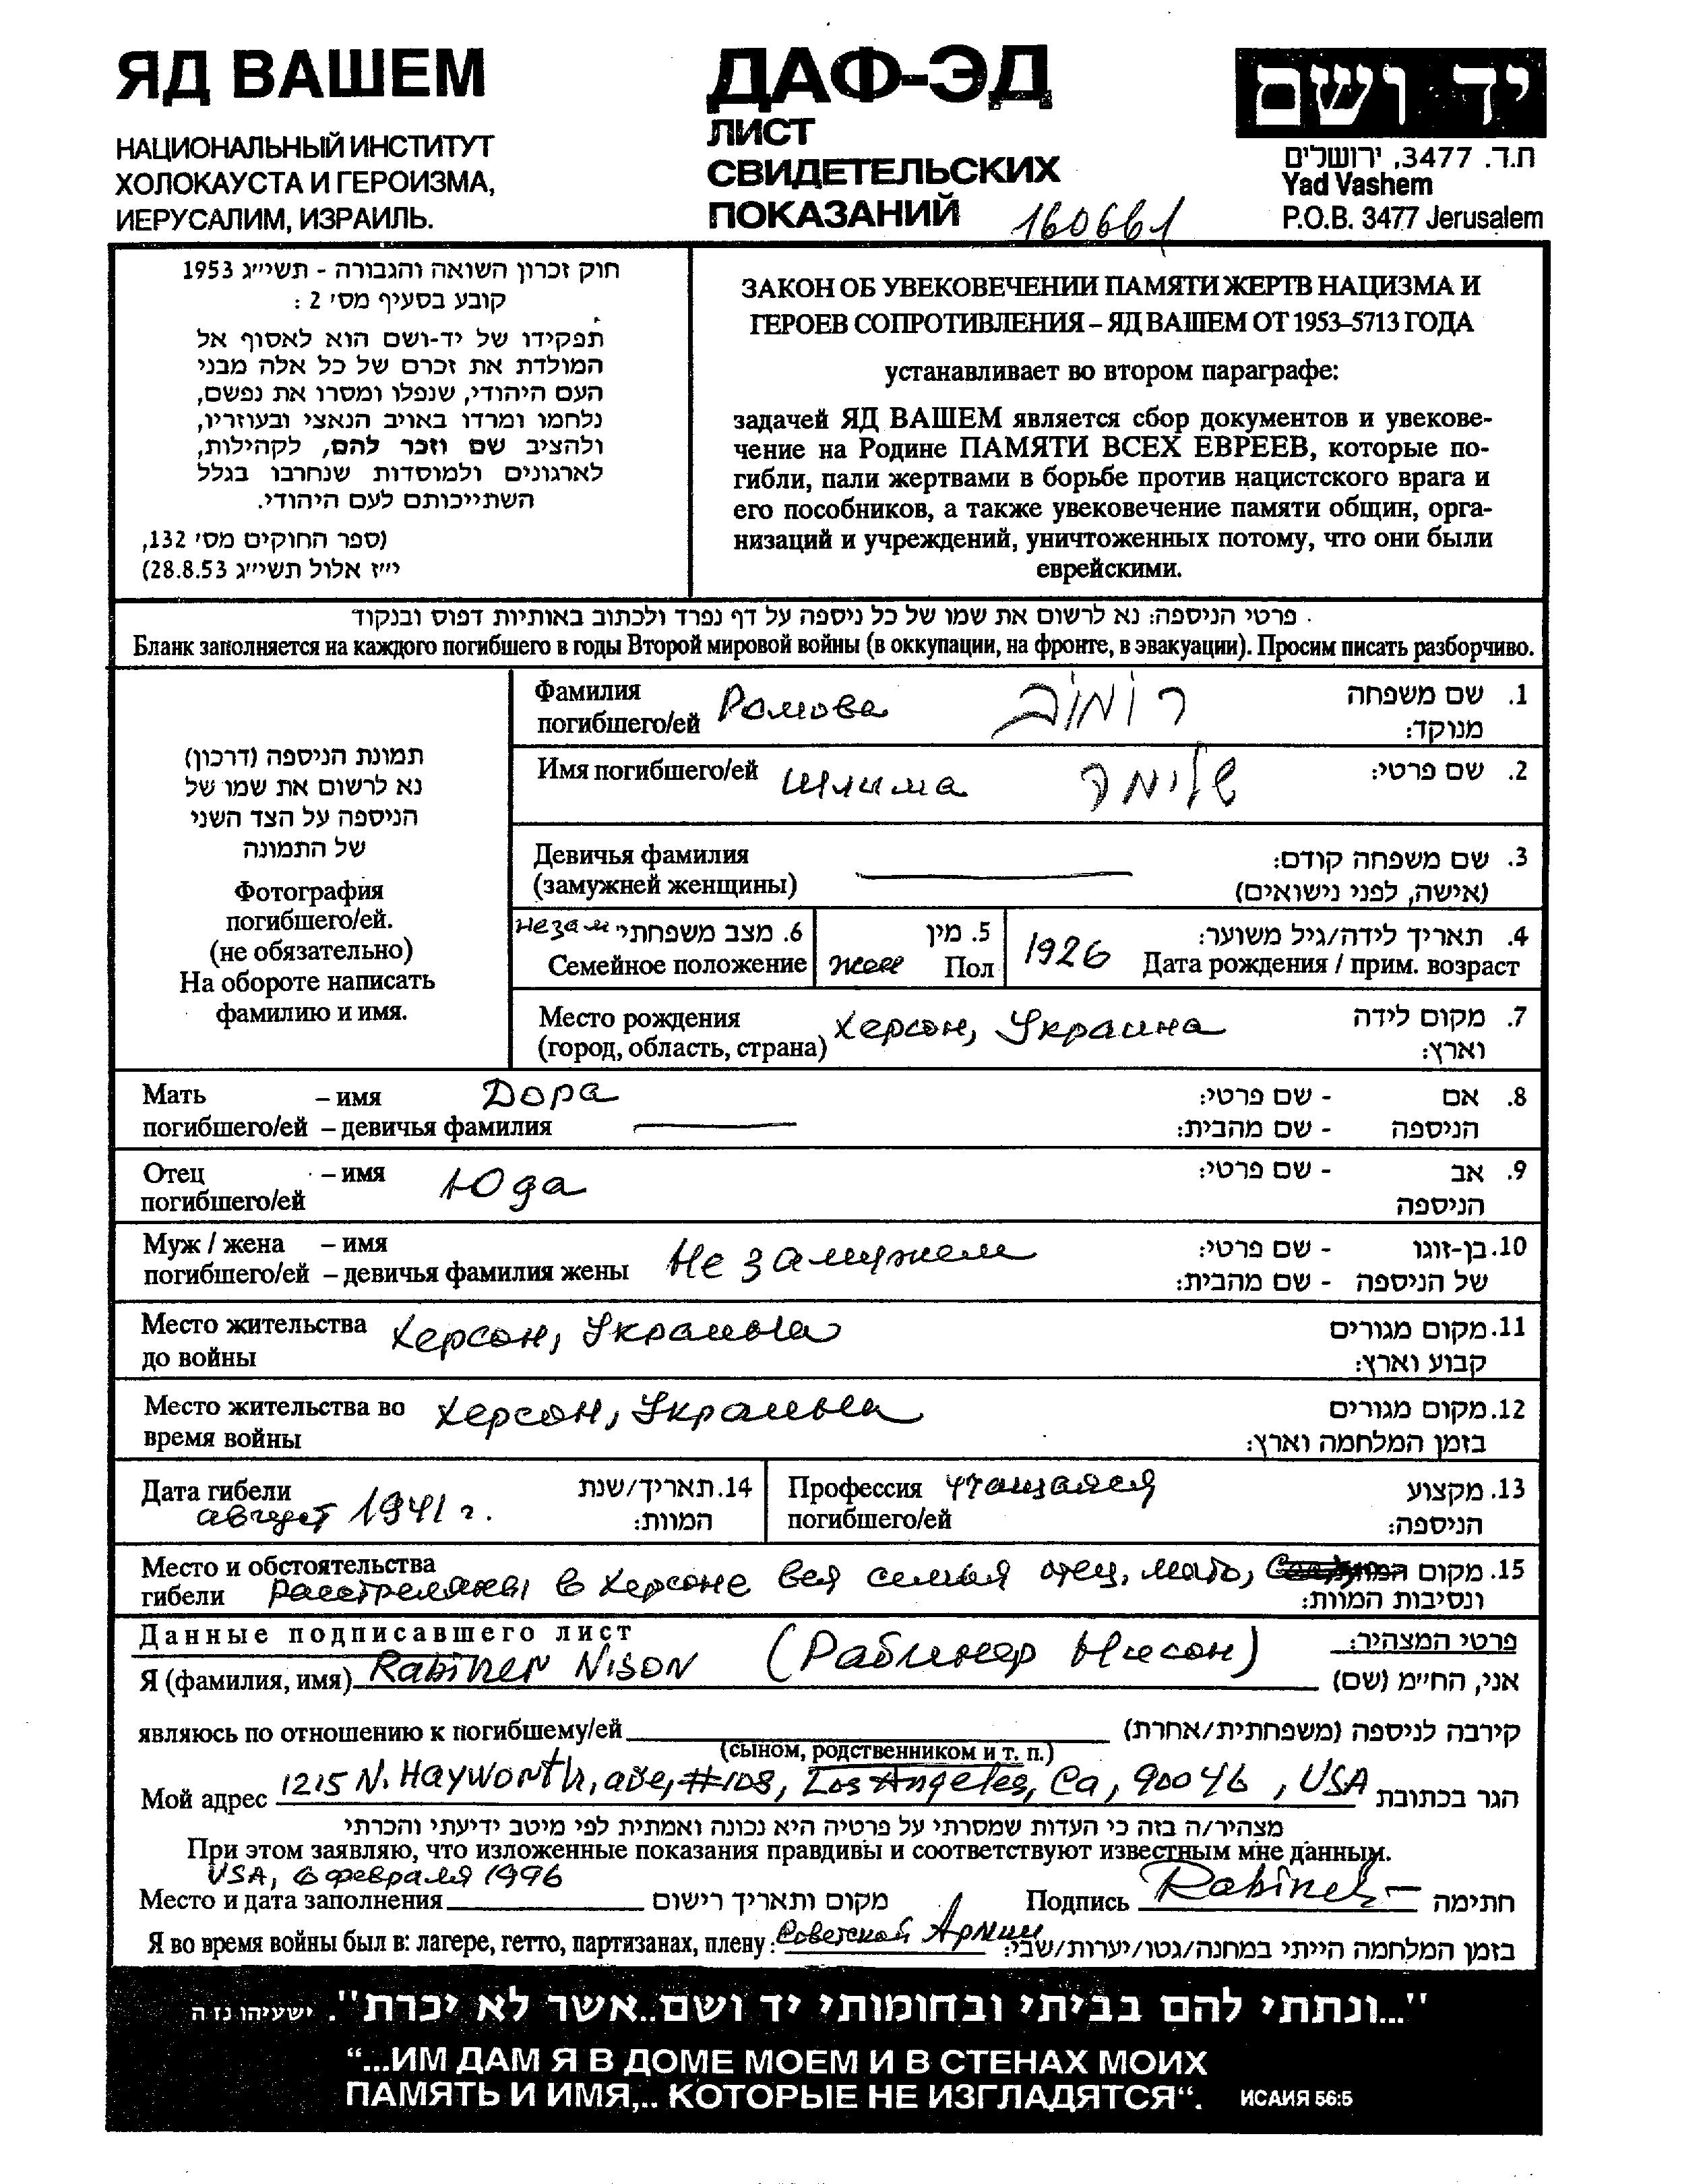 ЯД ВАШЕМ
НАЦИОНАЛЬНЫЙ ИНСТИТУТ
ХОЛОКАУСТА И ГЕРОИЗМА,
ИЕРУСАЛИМ, ИЗРАИЛЬ.
ДАФ-ЭД
ЛИСТ
СВИДЕТЕЛЬСКИХ
ПОКАЗАНИЙ 160661
יד ושם
ת.ד. 3477, ירושלים
Yad Vashem
P.O.B. 3477 Jerusalem
חוק זכרון השואה והגבורה - תשי״ג 1953
קובע בסעיף מס׳ 2 :
תפקידו של יד-ושם הוא לאסוף אל
המולדת את זכרם של כל אלה מבני
העם היהודי, שנפלו ומסרו את נפשם,
נלחמו ומרדו באויב הנאצי ובעוזריו,
ולהציב שם וזכר להם, לקהילות,
לארגונים ולמוסדות שנחרבו בגלל
השתייכותם לעם היהודי.
(ספר החוקים מס׳ 132,
י״ז אלול תשי״ג 28.8.53)
ЗАКОН ОБ УВЕКОВЕЧЕНИИ ПАМЯТИ ЖЕРТВ НАЦИЗМА И
ГЕРОЕВ СОПРОТИВЛЕНИЯ – ЯД ВАШЕМ ОТ 1953–5713 ГОДА
устанавливает во втором параграфе:
задачей ЯД ВАШЕМ является сбор документов и увекове-
чение на Родине ПАМЯТИ ВСЕХ ЕВРЕЕВ, которые по-
гибли, пали жертвами в борьбе против нацистского врага и
его пособников, а также увековечение памяти общин, орга-
низаций и учреждений, уничтоженных потому, что они были
еврейскими.
פרטי הניספה: נא לרשום את שמו של כל ניספה על דף נפרד ולכתוב באותיות דפוס ובנקוד
Бланк заполняется на каждого погибшего в годы Второй мировой войны (в оккупации, на фронте, в эвакуации). Просим писать разборчиво.
תמונת הניספה (דרכון)
נא לרשום את שמו של
הניספה על הצד השני
של התמונה
Фотография
погибшего/ей.
(не обязательно)
На обороте написать
фамилию и имя.
Фамилия
погибшего/ей Ромова רומוב
1. שם משפחה
מנוקד:
Имя погибшего/ей Шлима שלימה 2. שם פרטי:
Девичья фамилия
(замужней женщины)
3. שם משפחה קודם:
(אישה, לפני נישואים)
незам 6. מצב משפחתי
Семейное положение
5. מין
жен Пол
1926 4. תאריך לידה/גיל משוער:
Дата рождения / прим. возраст
Место рождения
(город, область, страна) Херсон, Украина
7. מקום לידה
וארץ:
Мать – имя Дора
погибшего/ей – девичья фамилия
8. אם - שם פרטי:
הניספה - שם מהבית:
Отец – имя Юда
погибшего/ей
9. אב - שם פרטי:
הניספה
Муж / жена – имя
погибшего/ей – девичья фамилия жены Не замужем
10. בן-זוגו - שם פרטי:
של הניספה - שם מהבית:
Место жительства Херсон, Украина
до войны
11. מקום מגורים
קבוע וארץ:
Место жительства во Херсон, Украина
время войны
12. מקום מגורים
בזמן המלחמה וארץ:
Дата гибели
август 1941 г.
14. תאריך/שנת
המוות:
Профессия учащаяся
погибшего/ей
13. מקצוע
הניספה:
Место и обстоятельства
гибели Расстреляны в Херсоне вся семья отец, мать,
15. מקום המוות
ונסיבות המוות:
Данные подписавшего лист פרטי המצהיר:
Я (фамилия, имя) Rabiner Nison (Рабинер Нисон) אני, החי״מ (שם)
являюсь по отношению к погибшему/ей קירבה לניספה (משפחתית/אחרת)
(сыном, родственником и т. п.)
Мой адрес 1215 N. Hayworth, ave, #108, Los Angeles, Ca, 90046, USA הגר בכתובת
מצהיר/ה בזה כי העדות שמסרתי על פרטיה היא נכונה ואמתית לפי מיטב ידיעתי והכרתי
При этом заявляю, что изложенные показания правдивы и соответствуют известным мне данным.
USA, 6 февраля 1996
Место и дата заполнения מקום ותאריך רישום Подпись Rabiner חתימה
Я во время войны был в: лагере, гетто, партизанах, плену: Советской Армии בזמן המלחמה הייתי במחנה/גטו/יערות/שבי:
"...ונתתי להם בביתי ובחומותי יד ושם..אשר לא יכרת". ישעיהו נז ה
“...ИМ ДАМ Я В ДОМЕ МОЕМ И В СТЕНАХ МОИХ
ПАМЯТЬ И ИМЯ,.. КОТОРЫЕ НЕ ИЗГЛАДЯТСЯ“. ИСАИЯ 56:5